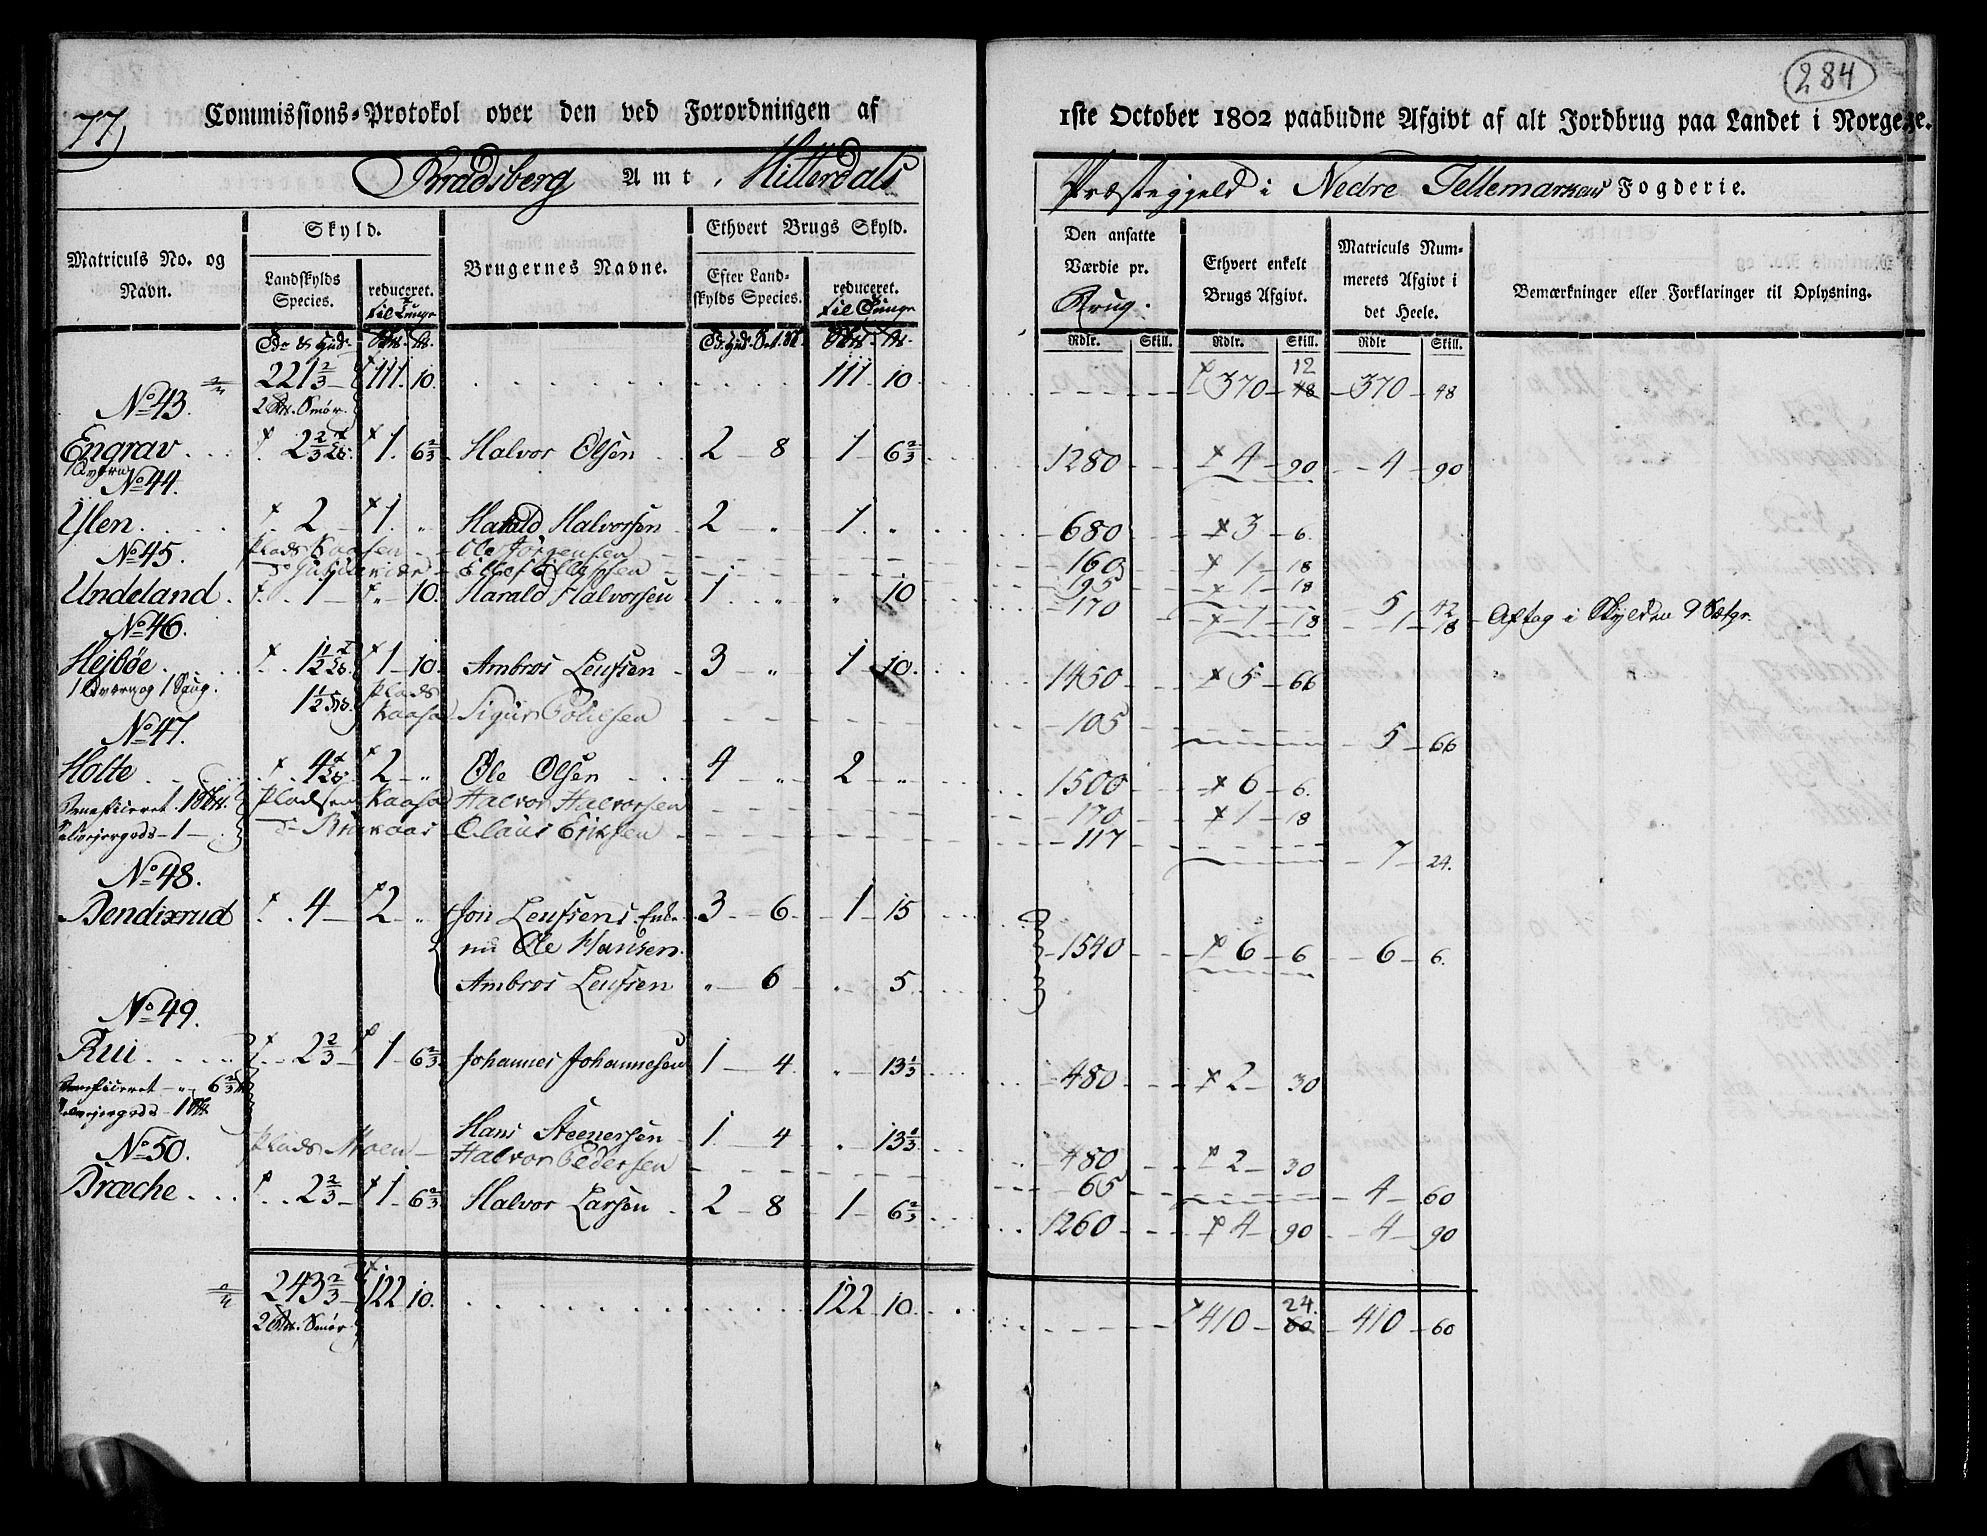 284
77)
Commissions-Protokol over den ved Forordningen af 1ste October 1802 paabudne Afgivt af alt Jordbrug paa Landet i Norge.
Bradsberg Amt, Hitterdals Præstegjeld i Nedre Tellemarkens Fogderie.
Matriculs No. og Navn.
Skyld.
Landskylds Species.
reduceret. til Tunge
Brugernes Navne.
Ethvert Brugs Skyld.
Efter Landskylds Species.
reduceret. til Tunge
Den ansatte Værdie pr. Brug.
Ethvert enkelt Brugs Afgivt.
Matriculs Nummerets Afgivt i det Heele.
Bemærkninger eller Forklaringer til Oplysning.
Rdlr. Skill. Rdlr. Skill. Rdlr Skill.
221 2/3 111. 10. 111 10 370 48 12 370 48
2 Smør.
No 43.
Engrav 2 2/3 1. 6 2/3 Halvor Olsen 2 8 1 6 2/3 1280 4 90 4 90
No 44.
Ylen 2 1 " Harald Halvorsen 2 " 1 " 680 3 6.
Plads Kaasen Ole Jørgensen 160 1 18
195 1 18 5 42
No 45.
Undeland 1 " 10. Harald Halvorsen 1 " " 10 170 1 18 1 18 Aftag i Skylden 9 Sætgr.
No 46.
Hejbøe 1 1/2 1 10. Ambros Leufsen 3 " 1 10 1450 5 66
1 Qvern og 1 Saug. 1 1/2 Plads Kaasa 105 5 66
No 47.
Holte 4 2 " Ole Olsen 4 " 2 " 1500 6 6.
Beneficeret 1 Pladsen Kaasa Halvor Halvorsen 170 1 18
Selvejergods 1 Claus Eriksen 117 7 24.
No 48.
Bendixrud 4 2 " Jon Leufsens Enke 3 6 1 15
nu Ole Hansen. 1540 6 6 6 6.
Ambros Leufsen " 6 " 5
No 49.
Rui 2 2/3 1 6 2/3 Johannes Johannesen 1 4 " 13 1/3 480 2 30
Beneficeret " 6 2/3
Selvejergods 1
Hans Steenersen 1 4 " 13 1/3 480 2 30
Plads Moen Halvor Pedersen 65 4 60
No 50.
Bræche 2 2/3 1 6 2/3 Halvor Larsen 2 8 1 6 2/3 1260 4 90 4 90
243 2/3 122 10. 122 10. 410 60 24. 410 60
2 Smør